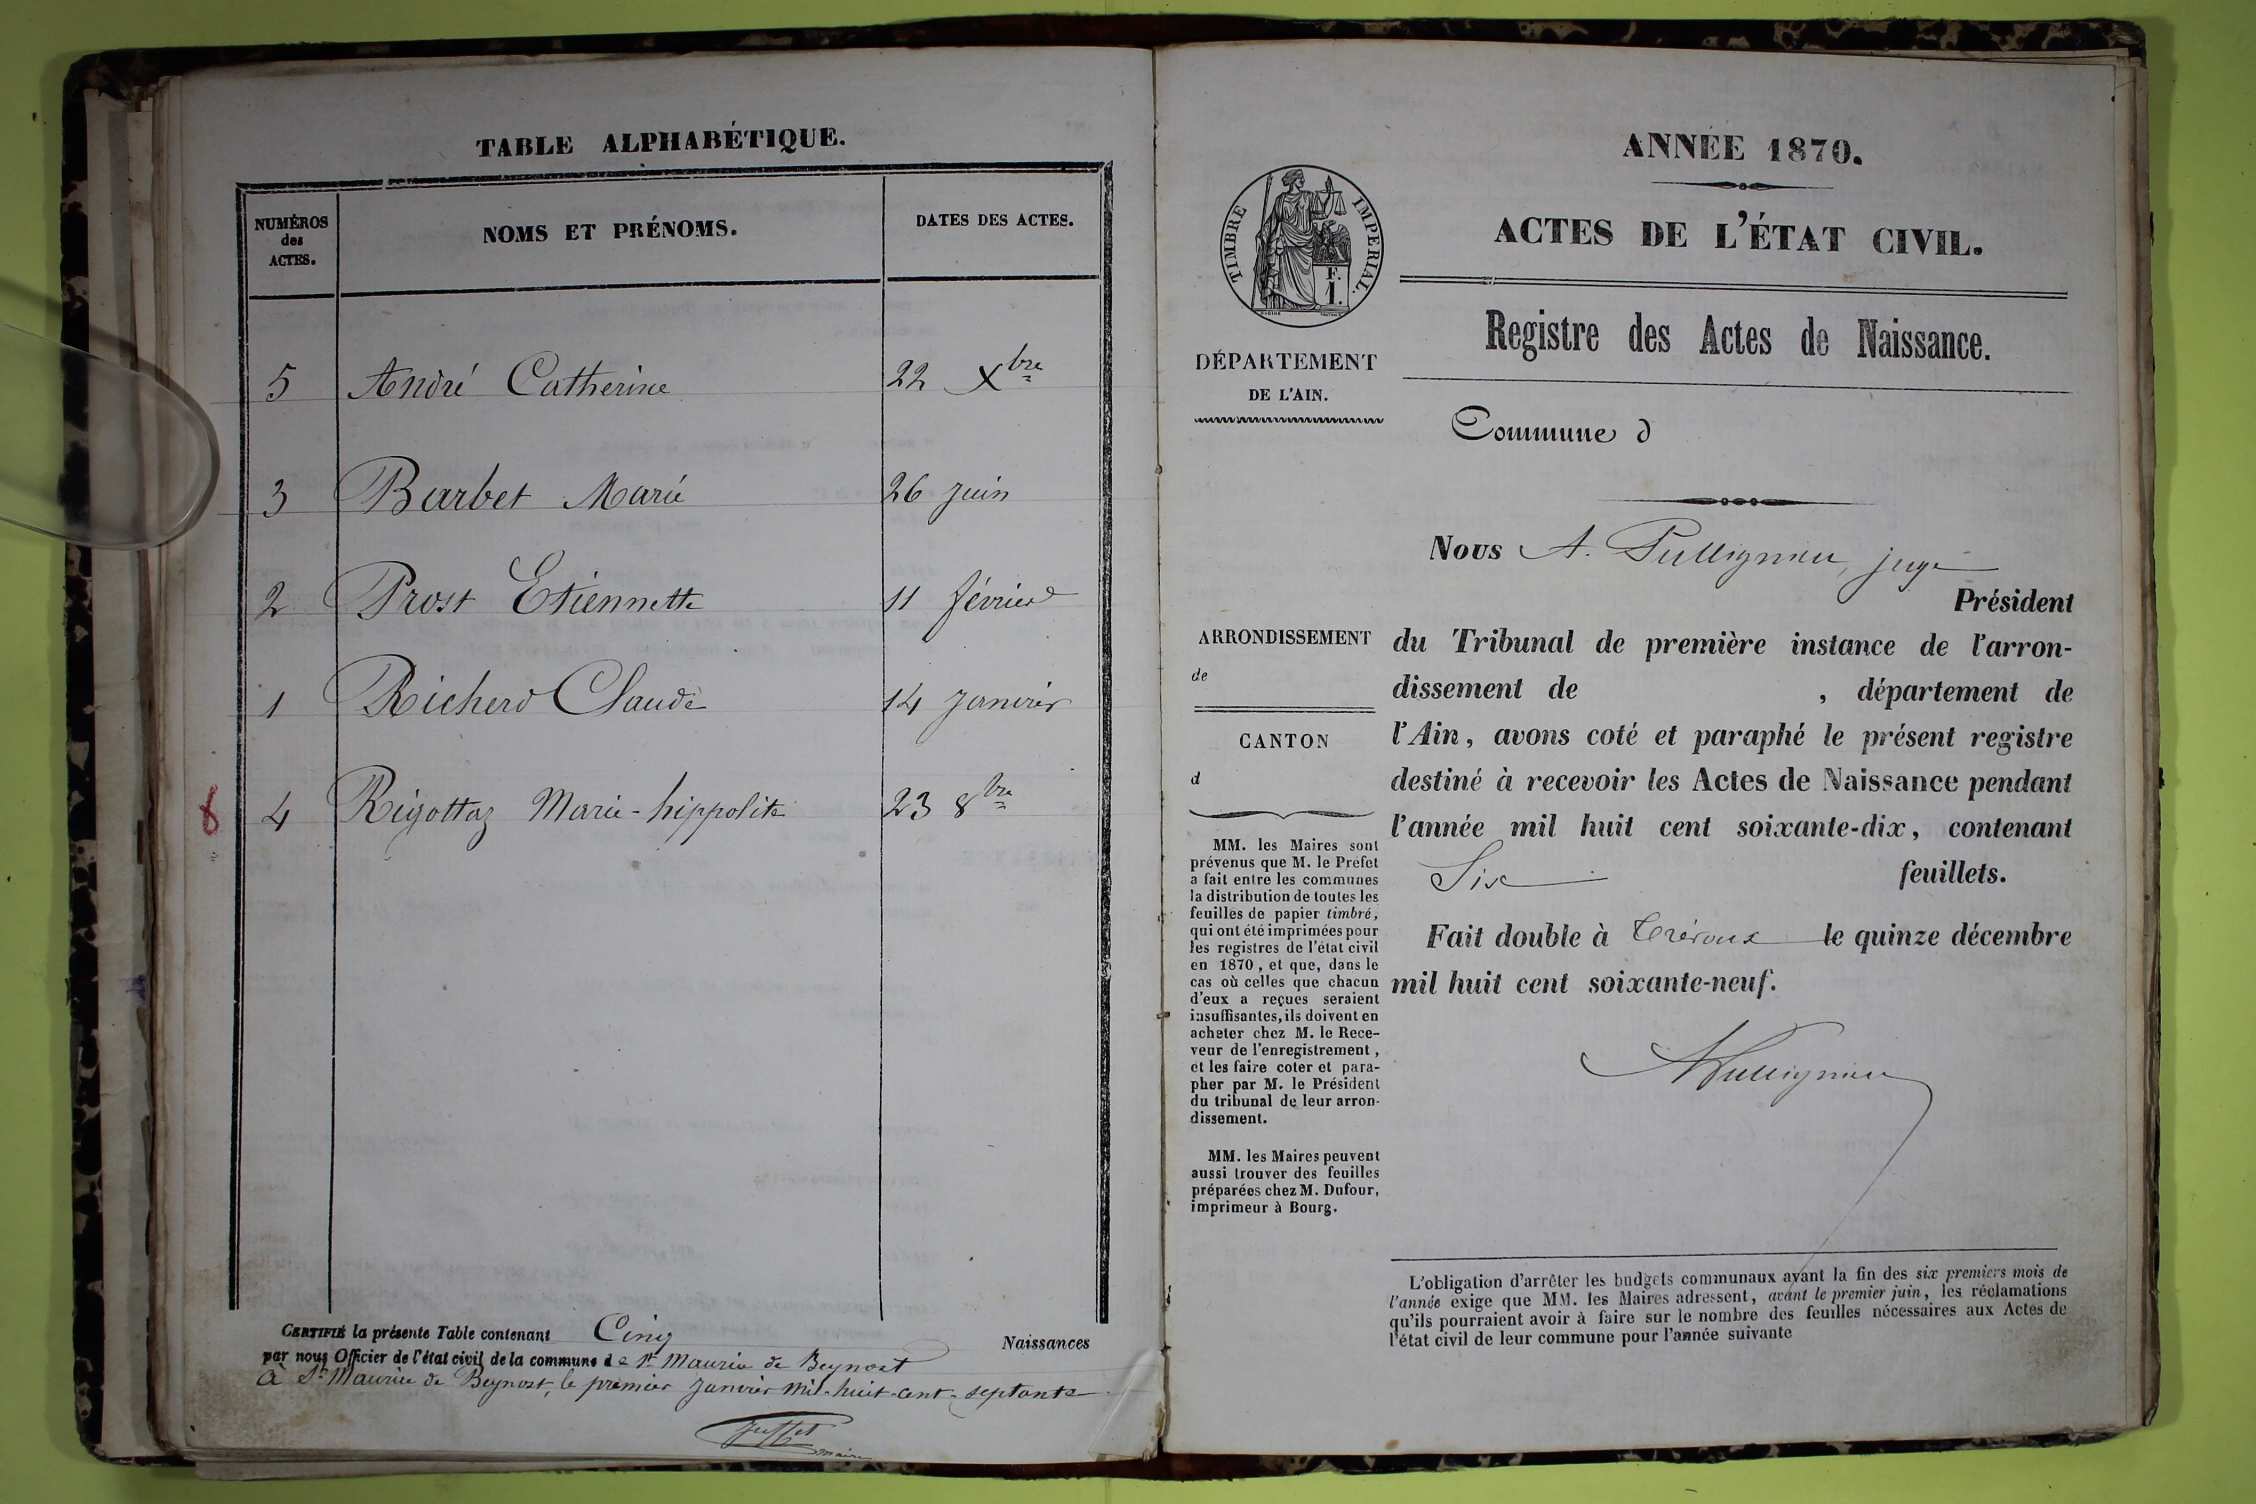 TABLE ALPHABÉTIQUE.
NUMÉROS des ACTES.
NOMS ET PRÉNOMS.
DATES DES ACTES.
5 André Catherine 22 Xbre
3 Barbet Marie 26 juin
2 Prost Etiennette 11 février
1 Richerd Claude 14 janvier
4 Rigottaz Marie-hippolite 23 8bre
CERTIFIÉ la présente Table contenant Cinq Naissances
par nous Officier de l'état civil de la commune de St Maurice de Beynost
à St Maurice de Beynost, le premier janvier mil-huit-cent-septante
maire
ANNÉE 1870.
ACTES DE L'ÉTAT CIVIL.
TIMBRE IMPERIAL.
F.
1.
Registre des Actes de Naissance.
DÉPARTEMENT
DE L'AIN.
Commune d
Nous A. juge
Président
ARRONDISSEMENT
de
CANTON
d
du Tribunal de première instance de l'arron-
dissement de , département de
l'Ain, avons coté et paraphé le présent registre
destiné à recevoir les Actes de Naissance pendant
l'année mil huit cent soixante-dix, contenant
Six feuillets.
Fait double à Trévoux le quinze décembre
mil huit cent soixante-neuf.
MM. les Maires sont
prévenus que M. le Préfet
a fait entre les communes
la distribution de toutes les
feuilles de papier timbré,
qui ont été imprimées pour
les registres de l'état civil
en 1870, et que, dans le
cas où celles que chacun
d'eux a reçues seraient
insuffisantes, ils doivent en
acheter chez M. le Rece-
veur de l'enregistrement,
et les faire coter et para-
pher par M. le Président
du tribunal de leur arron-
dissement.
MM. les Maires peuvent
aussi trouver des feuilles
préparées chez M. Dufour,
imprimeur à Bourg.
L'obligation d'arrêter les budgets communaux avant la fin des six premiers mois de
l'année exige que MM. les Maires adressent, avant le premier juin, les réclamations
qu'ils pourraient avoir à faire sur le nombre des feuilles nécessaires aux Actes de
l'état civil de leur commune pour l'année suivante